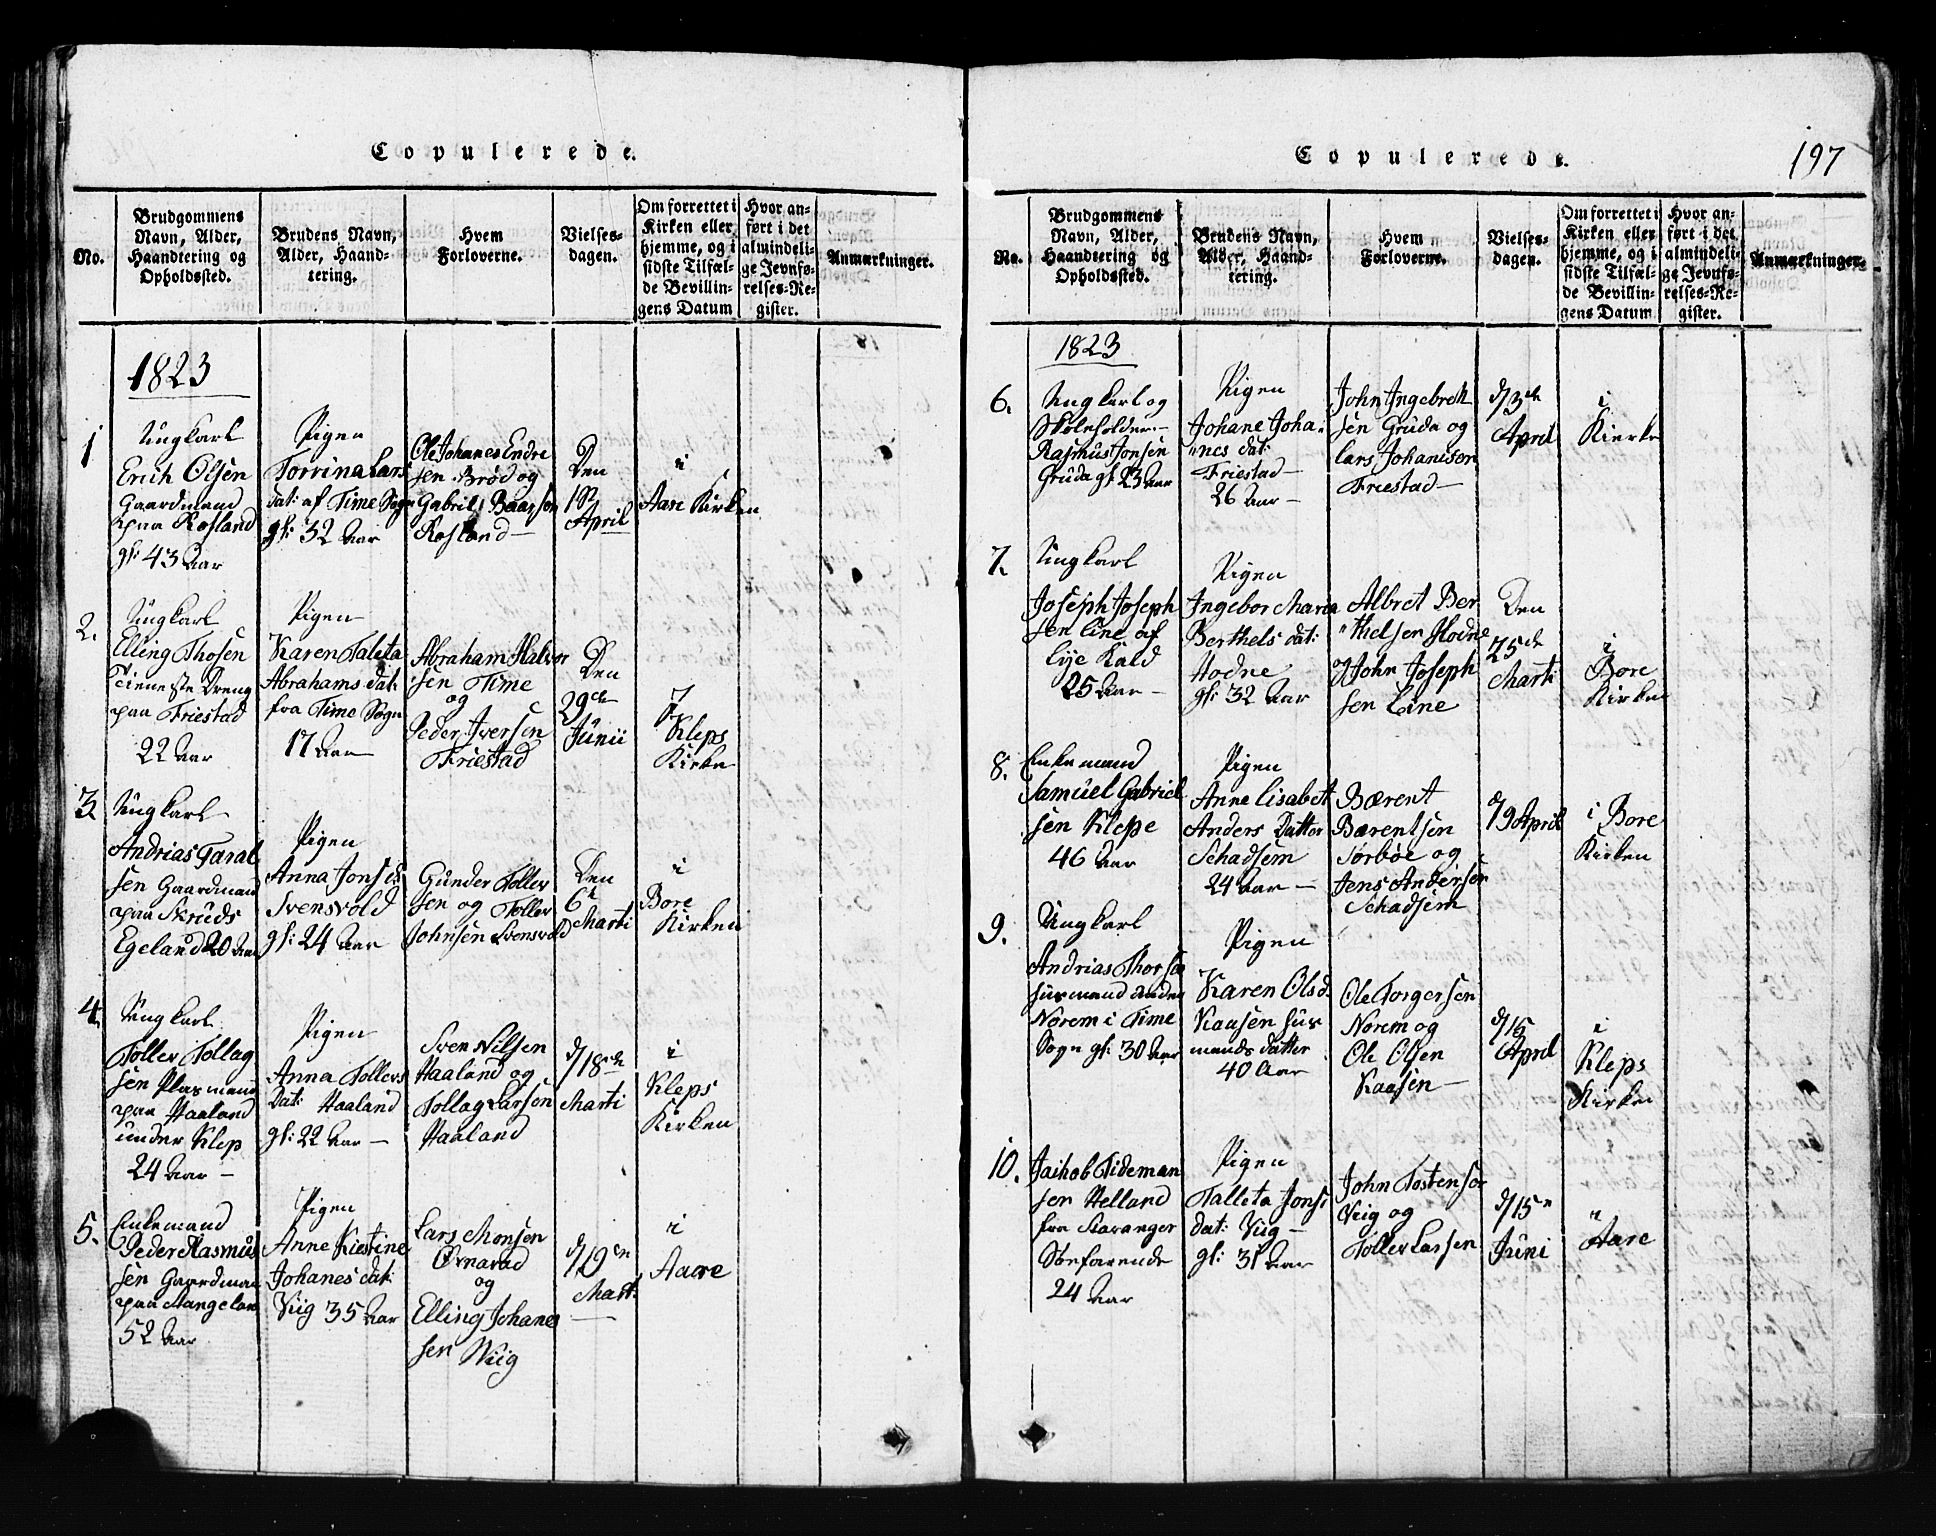 Copulerede.
No.
Brudgommens
Navn, Alder,
Haandtering og
Opholdssted.
Brudens Navn,
Alder, Haand-
tering.
Hvem
Forloverne.
Vielses-
dagen.
Om forrettet i
Kirken eller
hjemme, og i
sidste Tilfæl-
de Bevillin-
gens Datum
Hvor an-
ført i det
almindeli-
ge Jevnfø-
relses-Re-
gister.
Anmærkninger.
1823
1
Ungkarl
Erich Olsen
Gaardmand
paa Rosland
gl: 43 Aar
Pigen
Torrina Lars
dat: af Time Sogn
gl: 32 Aar
Ole Johanes Endre
sen Brød og
Gabriel Baarsen
Rosland
Den
1st
April
i
Aare Kirken
2.
Ungkarl
Elling Thosen
Tieneste Dreng
paa Friestad
22 Aar
Pigen
Karen Taleta
Abrahams dat:
fra Time Sogn
17 Aar
Abraham Halvor
sen Time
og
Peder Iversen
Friestad
Den
29de
Junii
i
Kleps
Kirke
3.
Ungkarl
Andrias Taral
sen Gaardmand
paa Skruds
Egeland 20 Aar
Pigen
Anna Jons d
Svensvold
gl: 24 Aar
Gunder Toller
sen og Toller
Johnsen Svensvold
Den
6te
Marti
i
Bore
Kirken
4.
Ungkarl
Toller Tollag
sen Plasmand
paa Haaland
under Klep
24 Aar
Pigen
Anna Tollers
Dat: Haaland
gl: 22 Aar
Sven Nilsen
Haaland og
Tollag Larsen
Haaland
d/18de
Marti
i
Kleps
Kirken
5.
Enkemand
Peder Rasmus
sen Gaardman
paa Hangeland
52 Aar
Pigen
Anne Kiestine
Johanes dat:
Viig 35 Aar
Lars Monsen
Ørnarad
og
Elling Johanes
sen Wiig
d/19en
Mart:
i
Aaore
Copulerede.
197
No.
Brudgommens
Navn, Alder,
Haandtering og
Opholdssted.
Brudens Navn,
Alder, Haand-
tering.
Hvem
Forloverne.
Vielses-
dagen.
Om forrettet i
Kirken eller
hjemme, og i
sidste Tilfæl-
de Bevillin-
gens Datum.
Hvor an-
ført i det
almindeli-
ge Jevnfø-
relses-Re-
gister.
Anmærkninger.
1823
6.
Ungkarl og
Skoleholder
Rasmus Jonsen
Gruda gl 23 aar
Pigen
Johane Joha
nes dat:
Friestad
26 Aar
John Ingebreth
sen Gruda og
Lars Johanisen
Friestad
d/3de
April
i
Kierke
7.
Ungkarl
Joseph Joseph
sen Line af
Lye Kald
25 Aar
Pigen
Ingebor Maria
Berthels dat:
Hodne
gl: 32 Aar
Albret Ber
thelsen Hodne
og John Joseph
sen Leine
Den
25de
Marti
i
Bore
Kirken
8.
Enkemand
Samuel Gabriel
sen Klepe
46 Aar
Pigen
Anne Lisabet
Anders Datter
Schadsem
24 Aar
Bærent
Bærentsen
Sørbøe og
Jens Andersen
Schadsem
d/9 April
i Bore
Kirken
9.
Ungkarl
Andrias Thorsen
husmand under
Norem i Time
Sogn gl: 30 Aar
Pigen
Karen Olsd:
Kaasen hus
mands datter
40 Aar
Ole Torgersen
Norem og
Ole Olsen
Kaasen
d/16
April
i
Kleps
Kirken
10.
Jaihob Tideman
sen Helland
fra Stavanger
Søefarende
24 Aar
Pigen
Talleta Jons
dat: Viig
gl: 31 Aar
John Tostensen
Viig og
Toller Larsen
d/15n
Juni
i
Aare